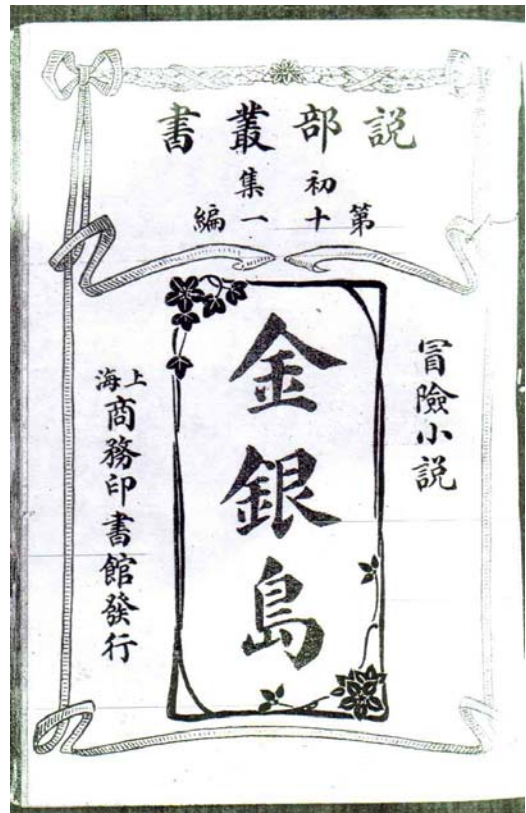 説部叢書
初集
第十一編
冒險小説
金銀島
上海商務印書館發行